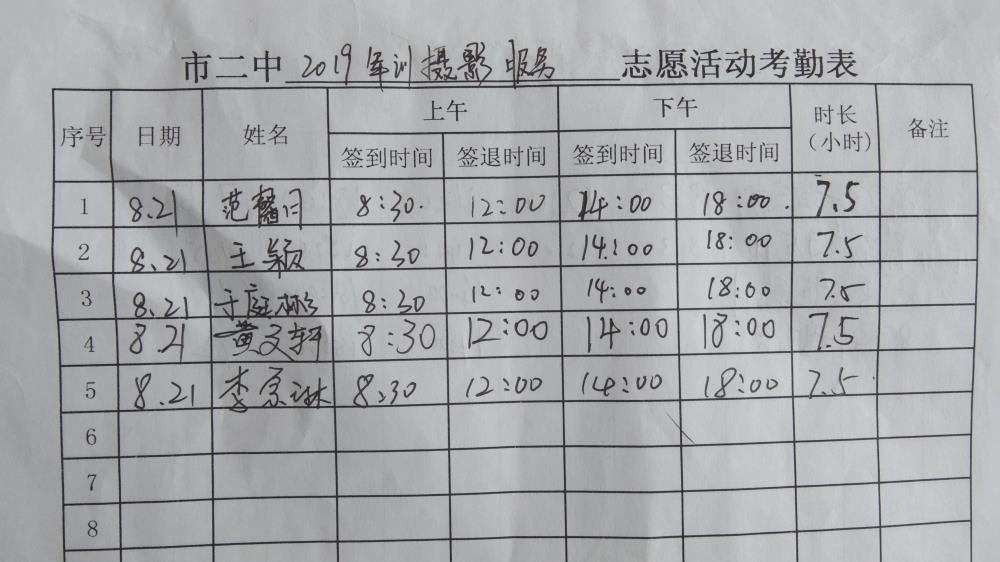 市二中 2019军训摄影服务 志愿活动考勤表
序号 日期 姓名 上午 下午 时长(小时) 备注
签到时间 签退时间 签到时间 签退时间
1 8.21 范馨月 8:30. 12:00 14:00 18:00. 7.5
2 8.21 王颖 8:30 12:00 14:00 18:00 7.5
3 8.21 于庭 8:30 12:00 14:00 18:00 7.5
4 8.21 黄文轩 8:30 12:00 14:00 18:00 7.5
5 8.21 李 琳 8:30 12:00 14:00 18:00 7.5
6
7
8